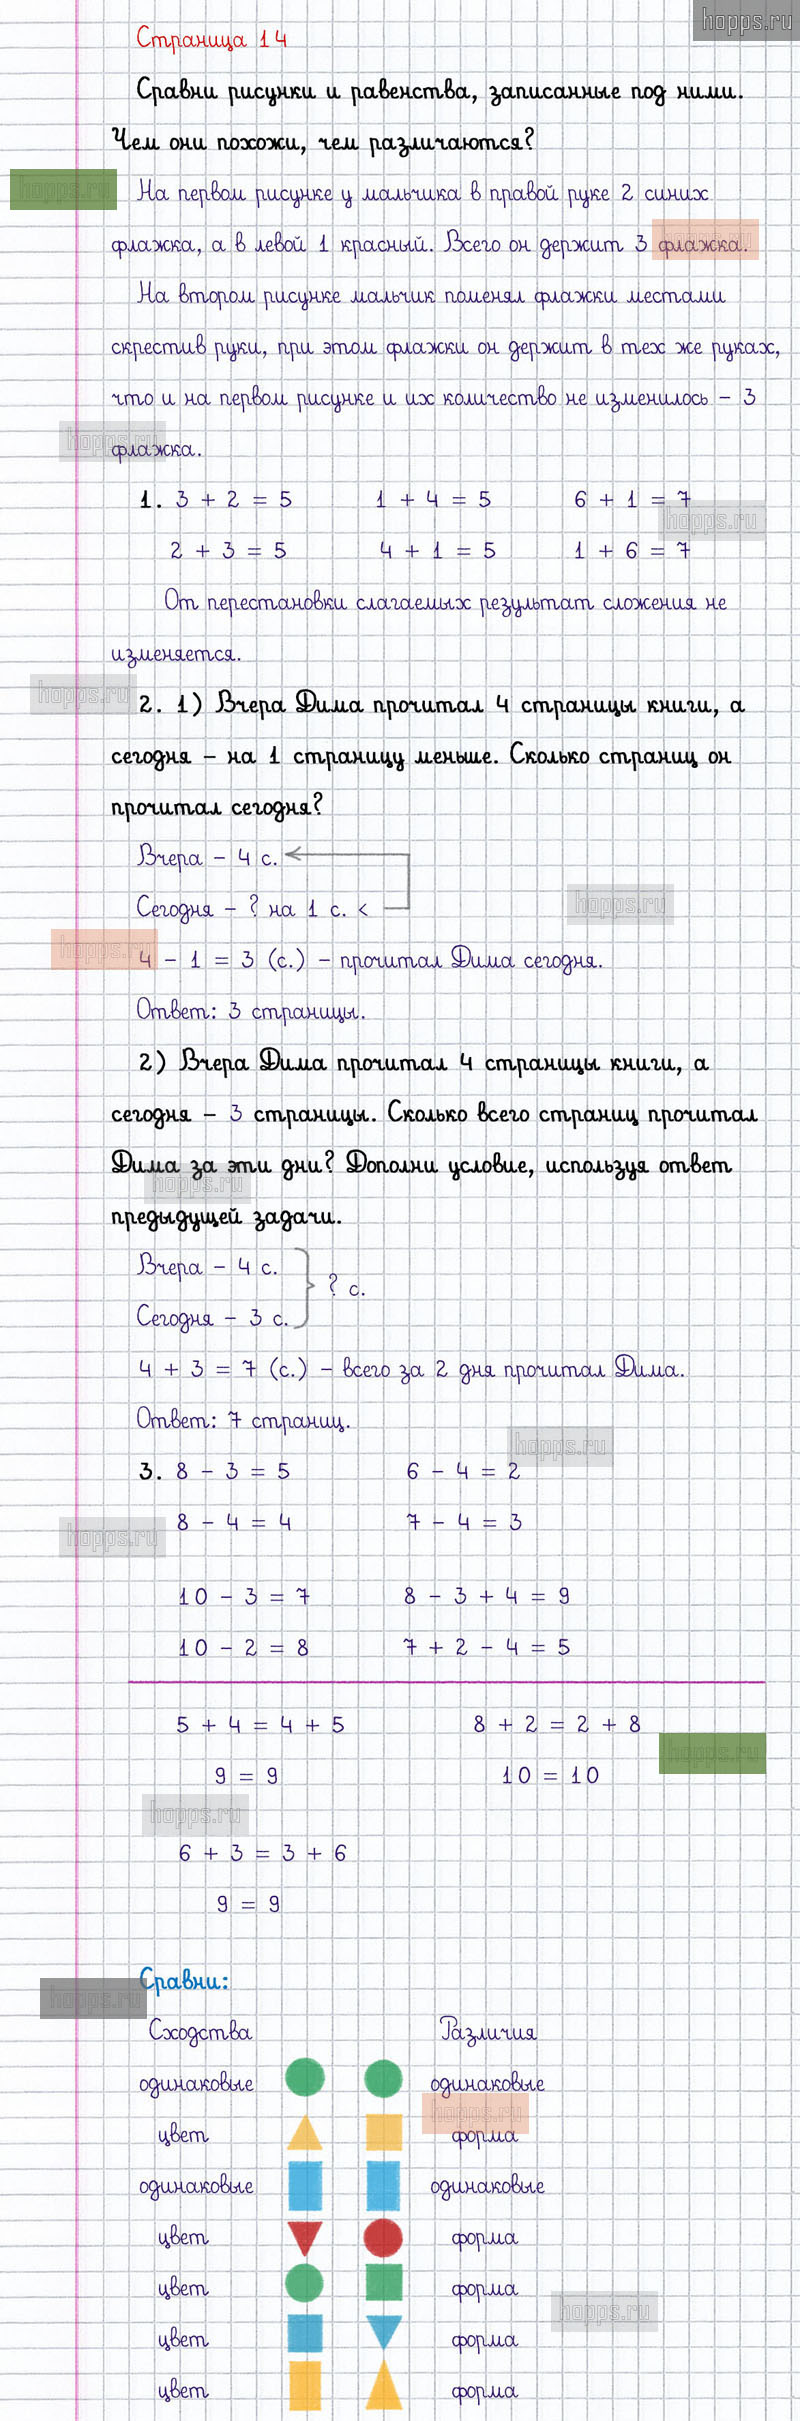 hopps.ru
Страница 14
Сравни рисунки и равенства, записанные под ними.
Чем они похожи, чем различаются?
hopps.ru
На первом рисунке у мальчика в правой руке 2 синих
флажка, а в левой 1 красный. Всего он держит 3 флажка.
hopps.ru
На втором рисунке мальчик поменял флажки местами
скрестив руки, при этом флажки он держит в тех же руках,
что и на первом рисунке и их количество не изменилось – 3
hopps.ru
флажка.
1. 3 + 2 = 5 1 + 4 = 5 6 + 1 = 7
hopps.ru
2 + 3 = 5 4 + 1 = 5 1 + 6 = 7
От перестановки слагаемых результат сложения не
изменяется.
hopps.ru
2. 1) Вчера Дима прочитал 4 страницы книги, а
сегодня – на 1 страницу меньше. Сколько страниц он
прочитал сегодня?
Вчера – 4 с.
Сегодня – ? на 1 с. <
hopps.ru
hopps.ru
4 – 1 = 3 (с.) – прочитал Дима сегодня.
Ответ: 3 страницы.
2) Вчера Дима прочитал 4 страницы книги, а
сегодня – 3 страницы. Сколько всего страниц прочитал
Дима за эти дни? Дополни условие, используя ответ
hopps.ru
предыдущей задачи.
Вчера – 4 с.
? с.
Сегодня – 3 с.
4 + 3 = 7 (с.) – всего за 2 дня прочитал Дима.
Ответ: 7 страниц.
hopps.ru
3. 8 – 3 = 5 6 – 4 = 2
8 – 4 = 4 7 – 4 = 3
hopps.ru
10 – 3 = 7 8 – 3 + 4 = 9
10 – 2 = 8 7 + 2 – 4 = 5
5 + 4 = 4 + 5 8 + 2 = 2 + 8
hopps.ru
9 = 9 10 = 10
hopps.ru
6 + 3 = 3 + 6
9 = 9
Сравни:
hopps.ru
Сходства Различия
одинаковые одинаковые
hopps.ru
цвет форма
одинаковые одинаковые
цвет форма
цвет форма
hopps.ru
цвет форма
цвет форма